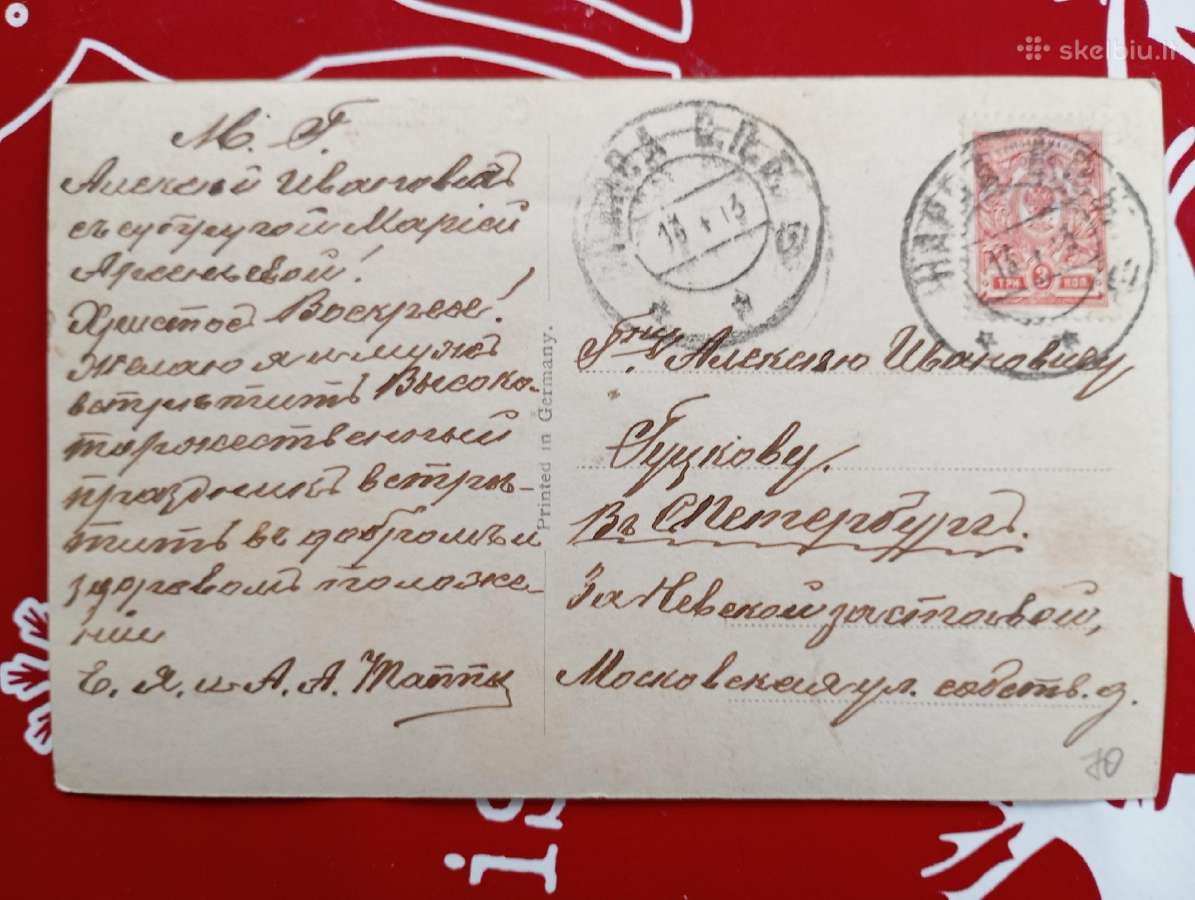 skelbiu.lt
М. Г.
Алексей Ивановичъ
съ супругой Марiей
Арсеньевой!
Христос Воскресе!
Желаю я и мужъ
встретить Высоко-
торжественный
праздникъ встре-
тить въ добромъ и
здоровомъ положе-
нiи
Е. Я. и А. А.
Printed in Germany.
НАРВА С.П.Б.
13
ТРИ 3 КОП.
НАРВА
Гну Алексѣю Ивановичу
Гуцкову.
Въ СПетербургъ.
За Невской заставой,
Московская ул. собств. д.
70
is